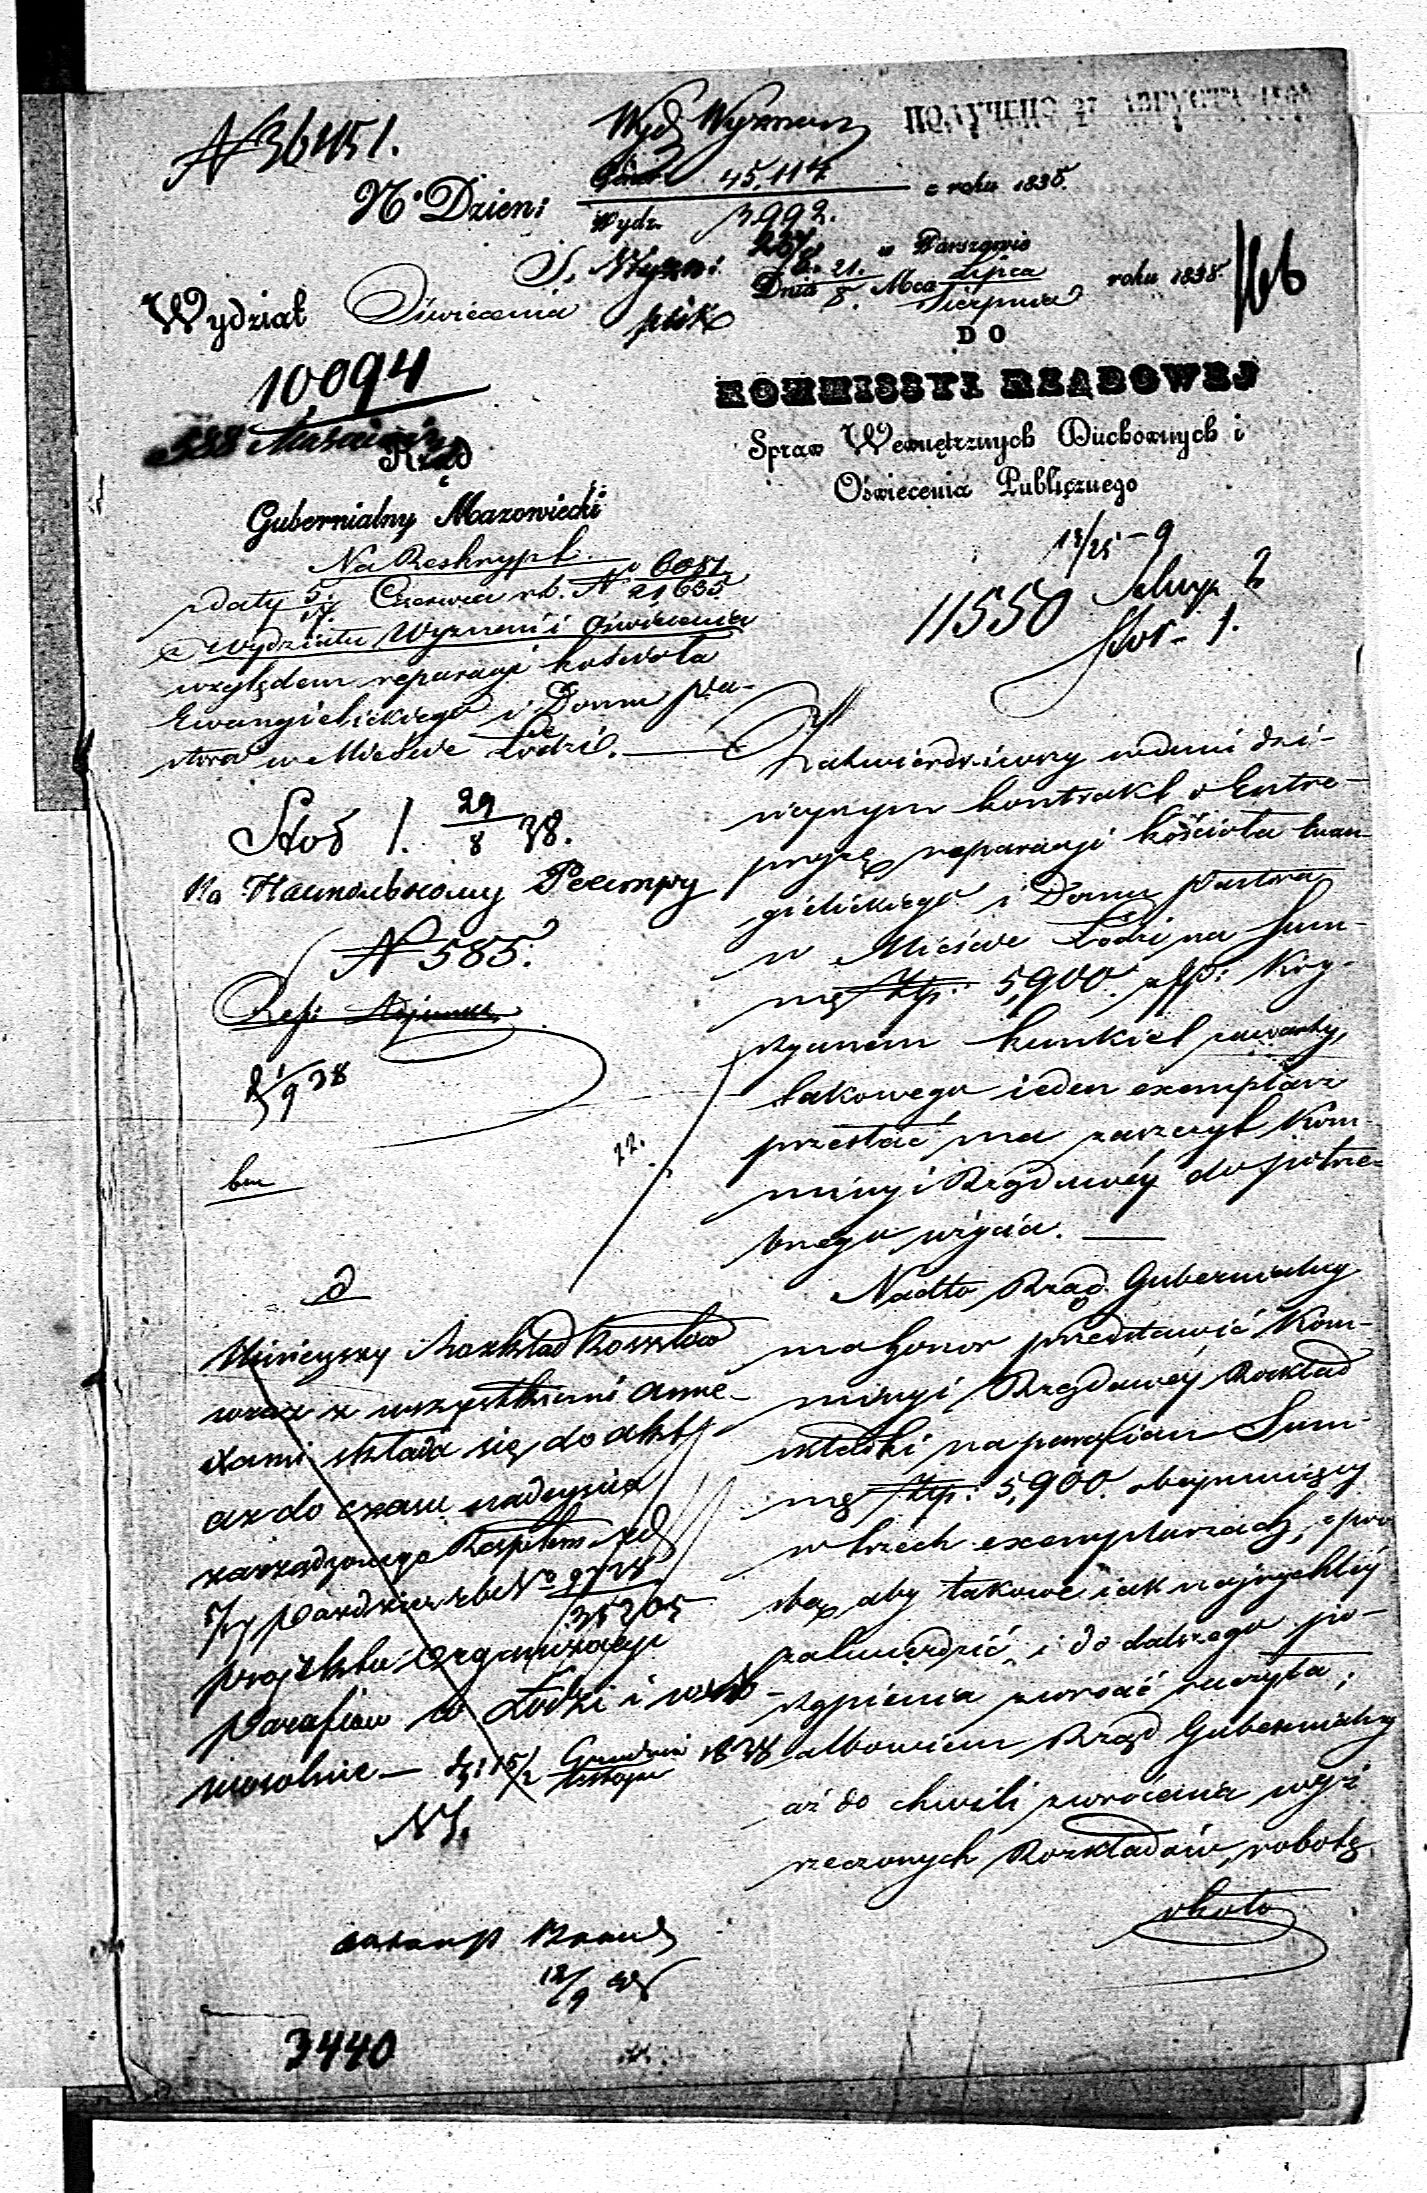 N 36451.
Wyd. Wyznań
ПОЛУЧЕНО 27 АВГУСТА
N. Dzien: 45,114 z roku 1838.
Wydz. 3992.
w Warszawie
Dnia 21. Lipca
8. Mca Sierpnia roku 1838
166
Wydział Oświecenia
DO
10,094
KOMMISSYI RZĄDOWEJ
588
Rząd
Spraw Wewnętrznych Duchownych i
Oświecenia Publicznego
Gubernialny Mazowiecki
Na Reskrypt
z daty 5/17 Czerwca r.b. N 6051/21635
z Wydziału Wyznań i Oświecenia
względem reparacyi kościoła
Ewangielickiego i Domu Pa-
stora w Mieście Łodzi.
11550
Stos 1.
Stos 1. 29/8 38.
N 585.
1/9 38
bm
Zatwierdziwszy w dniu dzi-
siejszym kontrakt o Entre-
pryzę reparacyi kościoła Ewan-
gielickiego i Domu Pastora
w Mieście Łodzi na Sum-
mę Złp: 5,900. z P: Kry-
styanem Kunkiel zawarty,
takowego ieden exemplarz
przesłać ma zaszczyt Kom-
missyi Rządowéy do potrze-
bnego użycia.
22.
Nadto Rząd Gubernialny
ma honor przedstawić Kom-
missyi Rządowéy Rozkład
składki na parafian Sum-
mę Złp: 5,900 obejmuiący
w trzech exemplarzach, z proś-
bą, aby takowe iak nayrychléy
zatwierdzić, i do dalszego po-
stąpienia zwrócić raczyła;
albowiem Rząd Gubernialny
aż do chwili zwrócenia wyż
rzeczonych Rozkładów, robotę
około
Ninieyszy Rozkład Kosztów
wraz z wszystkiemi anne-
xami składa się do akt
aż do czasu nadeyścia
zarządzonego Reskryptem z d.
Październ. r.b. No 9728/35205
projektu organizacyi
Parafiów w Łodzi i
15/ Grudnia/Listopa 1838
12/9 38
3440